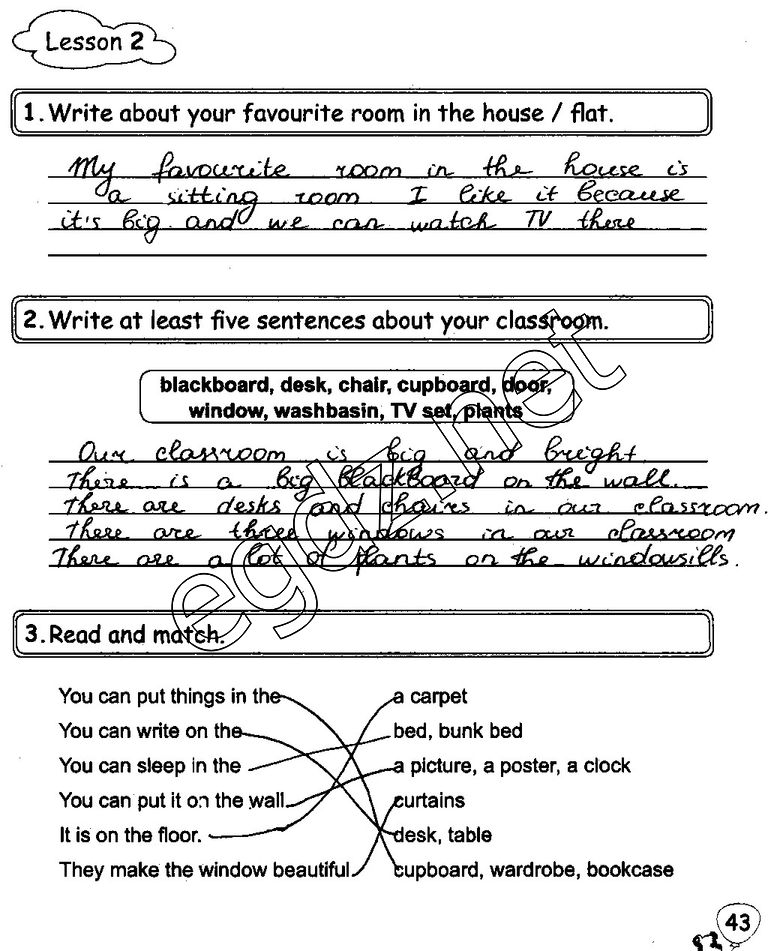 Lesson 2
1. Write about your favourite room in the house / flat.
My favourite room in the house is
a sitting room I like it because
it's big and we can watch TV there
2. Write at least five sentences about your classroom.
blackboard, desk, chair, cupboard, door,
window, washbasin, TV set, plants
Our classroom is big and bright.
There is a big blackboard on the wall.
There are desks and chairs in our classroom.
There are three windows in our classroom
There are a lot of plants on the windowsills.
egdz.net
3. Read and match.
You can put things in the a carpet
You can write on the bed, bunk bed
You can sleep in the a picture, a poster, a clock
You can put it on the wall. curtains
It is on the floor. desk, table
They make the window beautiful cupboard, wardrobe, bookcase
43